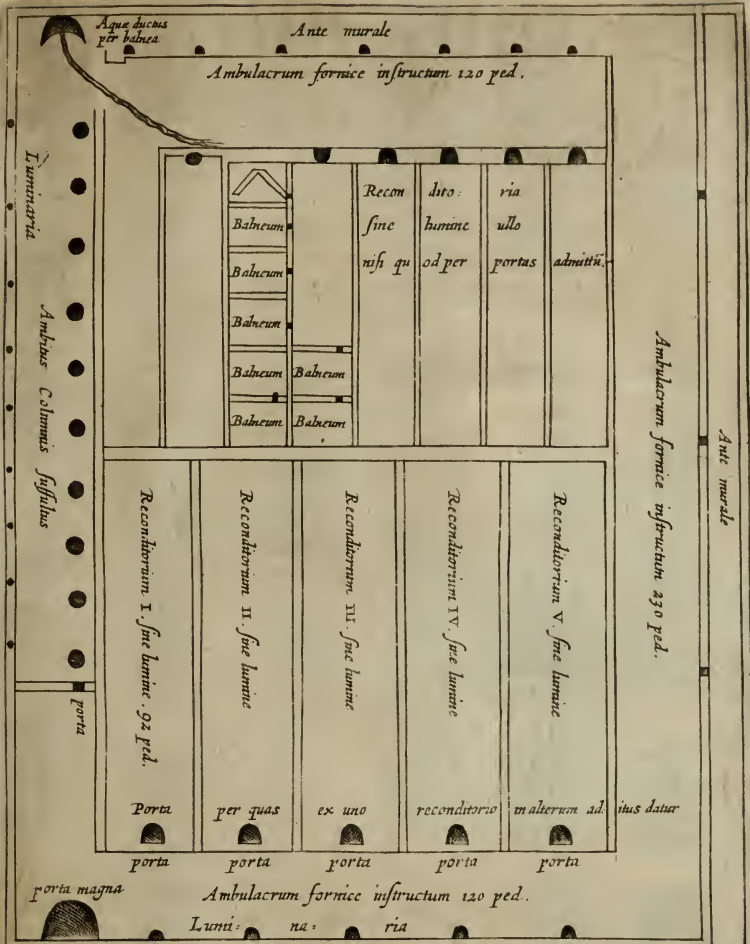 Aquæ ductus
per balnea
Ante murale
Ambulacrum fornice inſtructum 120 ped.
Luminaria
Ambitus Columnis ſuffultus
porta
Balneum
Balneum
Balneum
Balneum Balneum
Balneum Balneum
Recon dito: ria
ſine lumine ullo
niſi qu od per portas admittũ.
Ambulacrum fornice inſtructum 230 ped.
Ante murale
Reconditorium I. ſine lumine. 92 ped.
Reconditorium II. ſine lumine
Reconditorium III. ſine lumine
Reconditorium IV. ſine lumine
Reconditorium V. ſine lumine
Porta per quas ex uno reconditorio in alterum ad itus datur
porta porta porta porta porta
porta magna
Ambulacrum fornice inſtructum 120 ped.
Lumi: na: ria